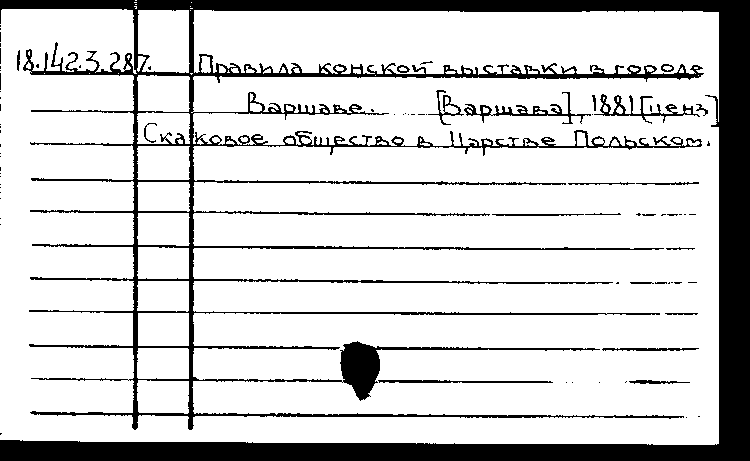 18.142.3.287. Правила конской выставки в городе
Варшаве. [Варшава], 1881 [ценз]
Скаковое общество в Царстве Польском.